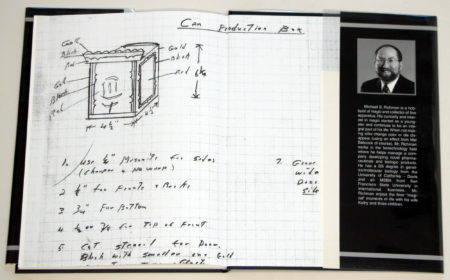 Can Production Box
Gold
Black
Red
Gold
Black
Red
1. use ½" Masonite for sides
(cheaper & no warp)
2 ½" for Fronts & Backs
3 3/4" For Bottom
for Top of Front
5 Cut stencil for Door.
Black with smaller one Gold
7. Glue
wide
Door
side
Michael S. Richman is a hob-
biest of magic and collector of fine
apparatus. His curiosity and inter-
est in magic started as a young-
ster and continues to be an inte-
gral part of his life. When not mak-
ing silks change color or dis-
appear (using an effect from Mel
Babcock of course), Mr. Richman
works in the biotechnology field
where he helps manage a com-
pany developing novel pharma-
ceuticals and biologic products.
He has a BS degree in genet-
ics/molecular biology from the
University of California - Davis
and an MSBA from San
Francisco State University in
international business. Mr.
Richman enjoys the finer "magi-
cal" moments of life with his wife
Kathy and three children.